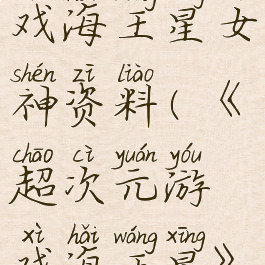 戏海王星女
shén zī liào
神资料(《
chāo cì yuán yóu
超次元游
xì hǎi wáng xīng
戏海王星》